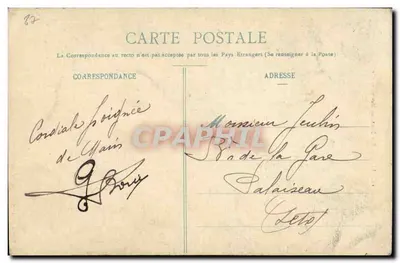 87
CARTE POSTALE
La Correspondance au verso n'est pas acceptée par tous les Pays Etrangers (Se renseigner à la Poste)
CORRESPONDANCE
ADRESSE
Cordiale Poignée
de Main
Monsieur
de la Gare
Palaiseau
CPA-PHILA.com